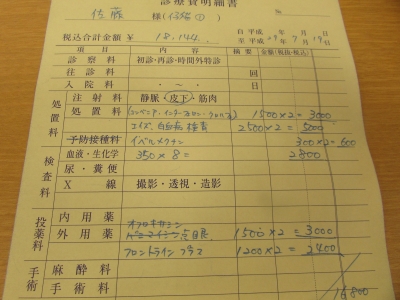 診療費明細書
佐藤 様(
№
税込合計金額 ¥ 18.144
自 平成 年 月 日
至 平成 29年 7月 19日
項目 内容 摘要 金額(税抜・税込)
診察料 初診・再診・時間外特診
往診料 回
入院料 ・ ~ ・ 日
処置料 注射料 静脈・皮下・筋肉
処置料 1500×2= 3000
エイズ、白血病 検査 2500×2= 5000
予防接種料 イベルメクチン 300×2=600
検査料 血液・生化学 350×8= 2800
尿・糞便
X線 撮影・透視・造影
投薬料 内用薬 オフロキサシン
外用薬 点眼 1500×2=3000
フロントライン プラス 1200×2=2400
手術 麻酔料
手術料
16.800